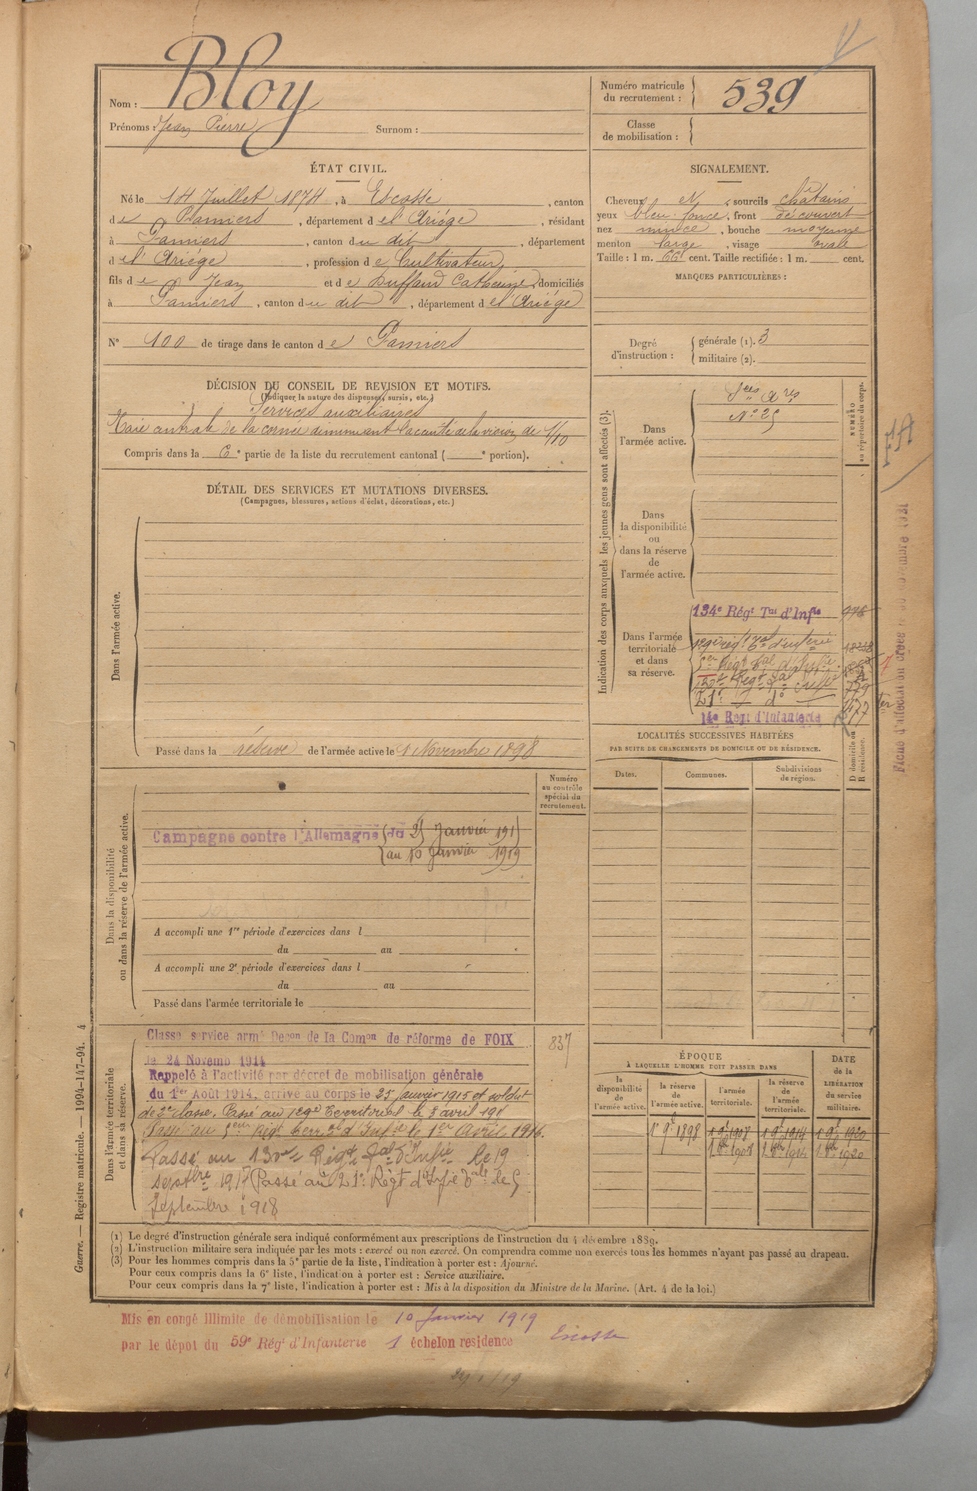 Nom : Bloy
Prénoms : Jean Pierre Surnom :
Numéro matricule du recrutement : 539
Classe de mobilisation :
ÉTAT CIVIL.
Né le 14 Juillet 1874, à Escosse, canton
de Pamiers, département de l'Ariège, résidant
à Pamiers, canton du dit, département
de l'Ariège, profession de Cultivateur,
fils de Jean et de Catherine, domiciliés
à Pamiers, canton du dit, département de l'Ariège
N° 100 de tirage dans le canton de Pamiers
SIGNALEMENT.
Cheveux et sourcils châtains
yeux bleu foncé, front découvert
nez mince, bouche moyenne
menton large, visage ovale
Taille : 1 m. 66 cent. Taille rectifiée : 1 m. cent.
MARQUES PARTICULIÈRES :
Degré d'instruction :
générale (1). 3
militaire (2).
DÉCISION DU CONSEIL DE REVISION ET MOTIFS.
(Indiquer la nature des dispenses, sursis, etc.)
Services auxiliaires
Taie centrale de la cornée diminuant l'acuité de la vision de 1/10
Compris dans la 6e partie de la liste du recrutement cantonal ( e portion).
DÉTAIL DES SERVICES ET MUTATIONS DIVERSES.
(Campagnes, blessures, actions d'éclat, décorations, etc.)
Dans l'armée active.
Passé dans la réserve de l'armée active le 1 Novembre 1898
Indication des corps auxquels les jeunes gens sont affectés (3).
NUMÉRO au répertoire du corps.
Dans l'armée active.
N° 25
Dans la disponibilité ou dans la réserve de l'armée active.
Dans l'armée territoriale et dans sa réserve.
134e Régt Tal d'Infie 978
129e régt
14e Regt d'Infanterie
Fiche d'affectation
FA
LOCALITÉS SUCCESSIVES HABITÉES
PAR SUITE DE CHANGEMENTS DE DOMICILE OU DE RÉSIDENCE.
Dates. Communes. Subdivisions de région. D domicile ou R résidence.
Numéro au contrôle spécial du recrutement.
Dans la disponibilité ou dans la réserve de l'armée active.
Campagne contre l'Allemagne du 25 Janvier 1915
au 10 Janvier 1919
A accompli une 1re période d'exercices dans l
du au
A accompli une 2e période d'exercices dans l
du au
Passé dans l'armée territoriale le
Dans l'armée territoriale et dans sa réserve.
Classé service armé Décon de la Comon de réforme de FOIX
le 24 Novemb 1914
837
Rappelé à l'activité par décret de mobilisation générale
du 1er Août 1914, arrivé au corps le 25 janvier 1915 et soldat
de 2e classe. Passé au 129e Territorial le 5 avril 191
Passé au 5eme Régt Terr al d'Infie le 1er Avril 1916.
Passé au 130e Régt Tal d'Infie le 19
septbre 1917 Passé au 21e Régt d'Infie Colle le 5
Septembre 1918
ÉPOQUE
À LAQUELLE L'HOMME DOIT PASSER DANS
la disponibilité de l'armée active.
la réserve de l'armée active.
l'armée territoriale.
la réserve de l'armée territoriale.
DATE de la LIBÉRATION du service militaire.
1 9bre 1898 1 9bre 1908 1 9bre 1914 1 9bre 1920
1 8bre 1908 1 8bre 1914 1 8bre 1920
Guerre. — Registre matricule. — 1994-147-94. 4
(1) Le degré d'instruction générale sera indiqué conformément aux prescriptions de l'instruction du 4 décembre 1889.
(2) L'instruction militaire sera indiquée par les mots : exercé ou non exercé. On comprendra comme non exercés tous les hommes n'ayant pas passé au drapeau.
(3) Pour les hommes compris dans la 5e partie de la liste, l'indication à porter est : Ajourné.
Pour ceux compris dans la 6e liste, l'indication à porter est : Service auxiliaire.
Pour ceux compris dans la 7e liste, l'indication à porter est : Mis à la disposition du Ministre de la Marine. (Art. 4 de la loi.)
Mis en congé illimité de démobilisation le 10 Janvier 1919
par le dépot du 59e Régt d'Infanterie 1 échelon résidence Escosse